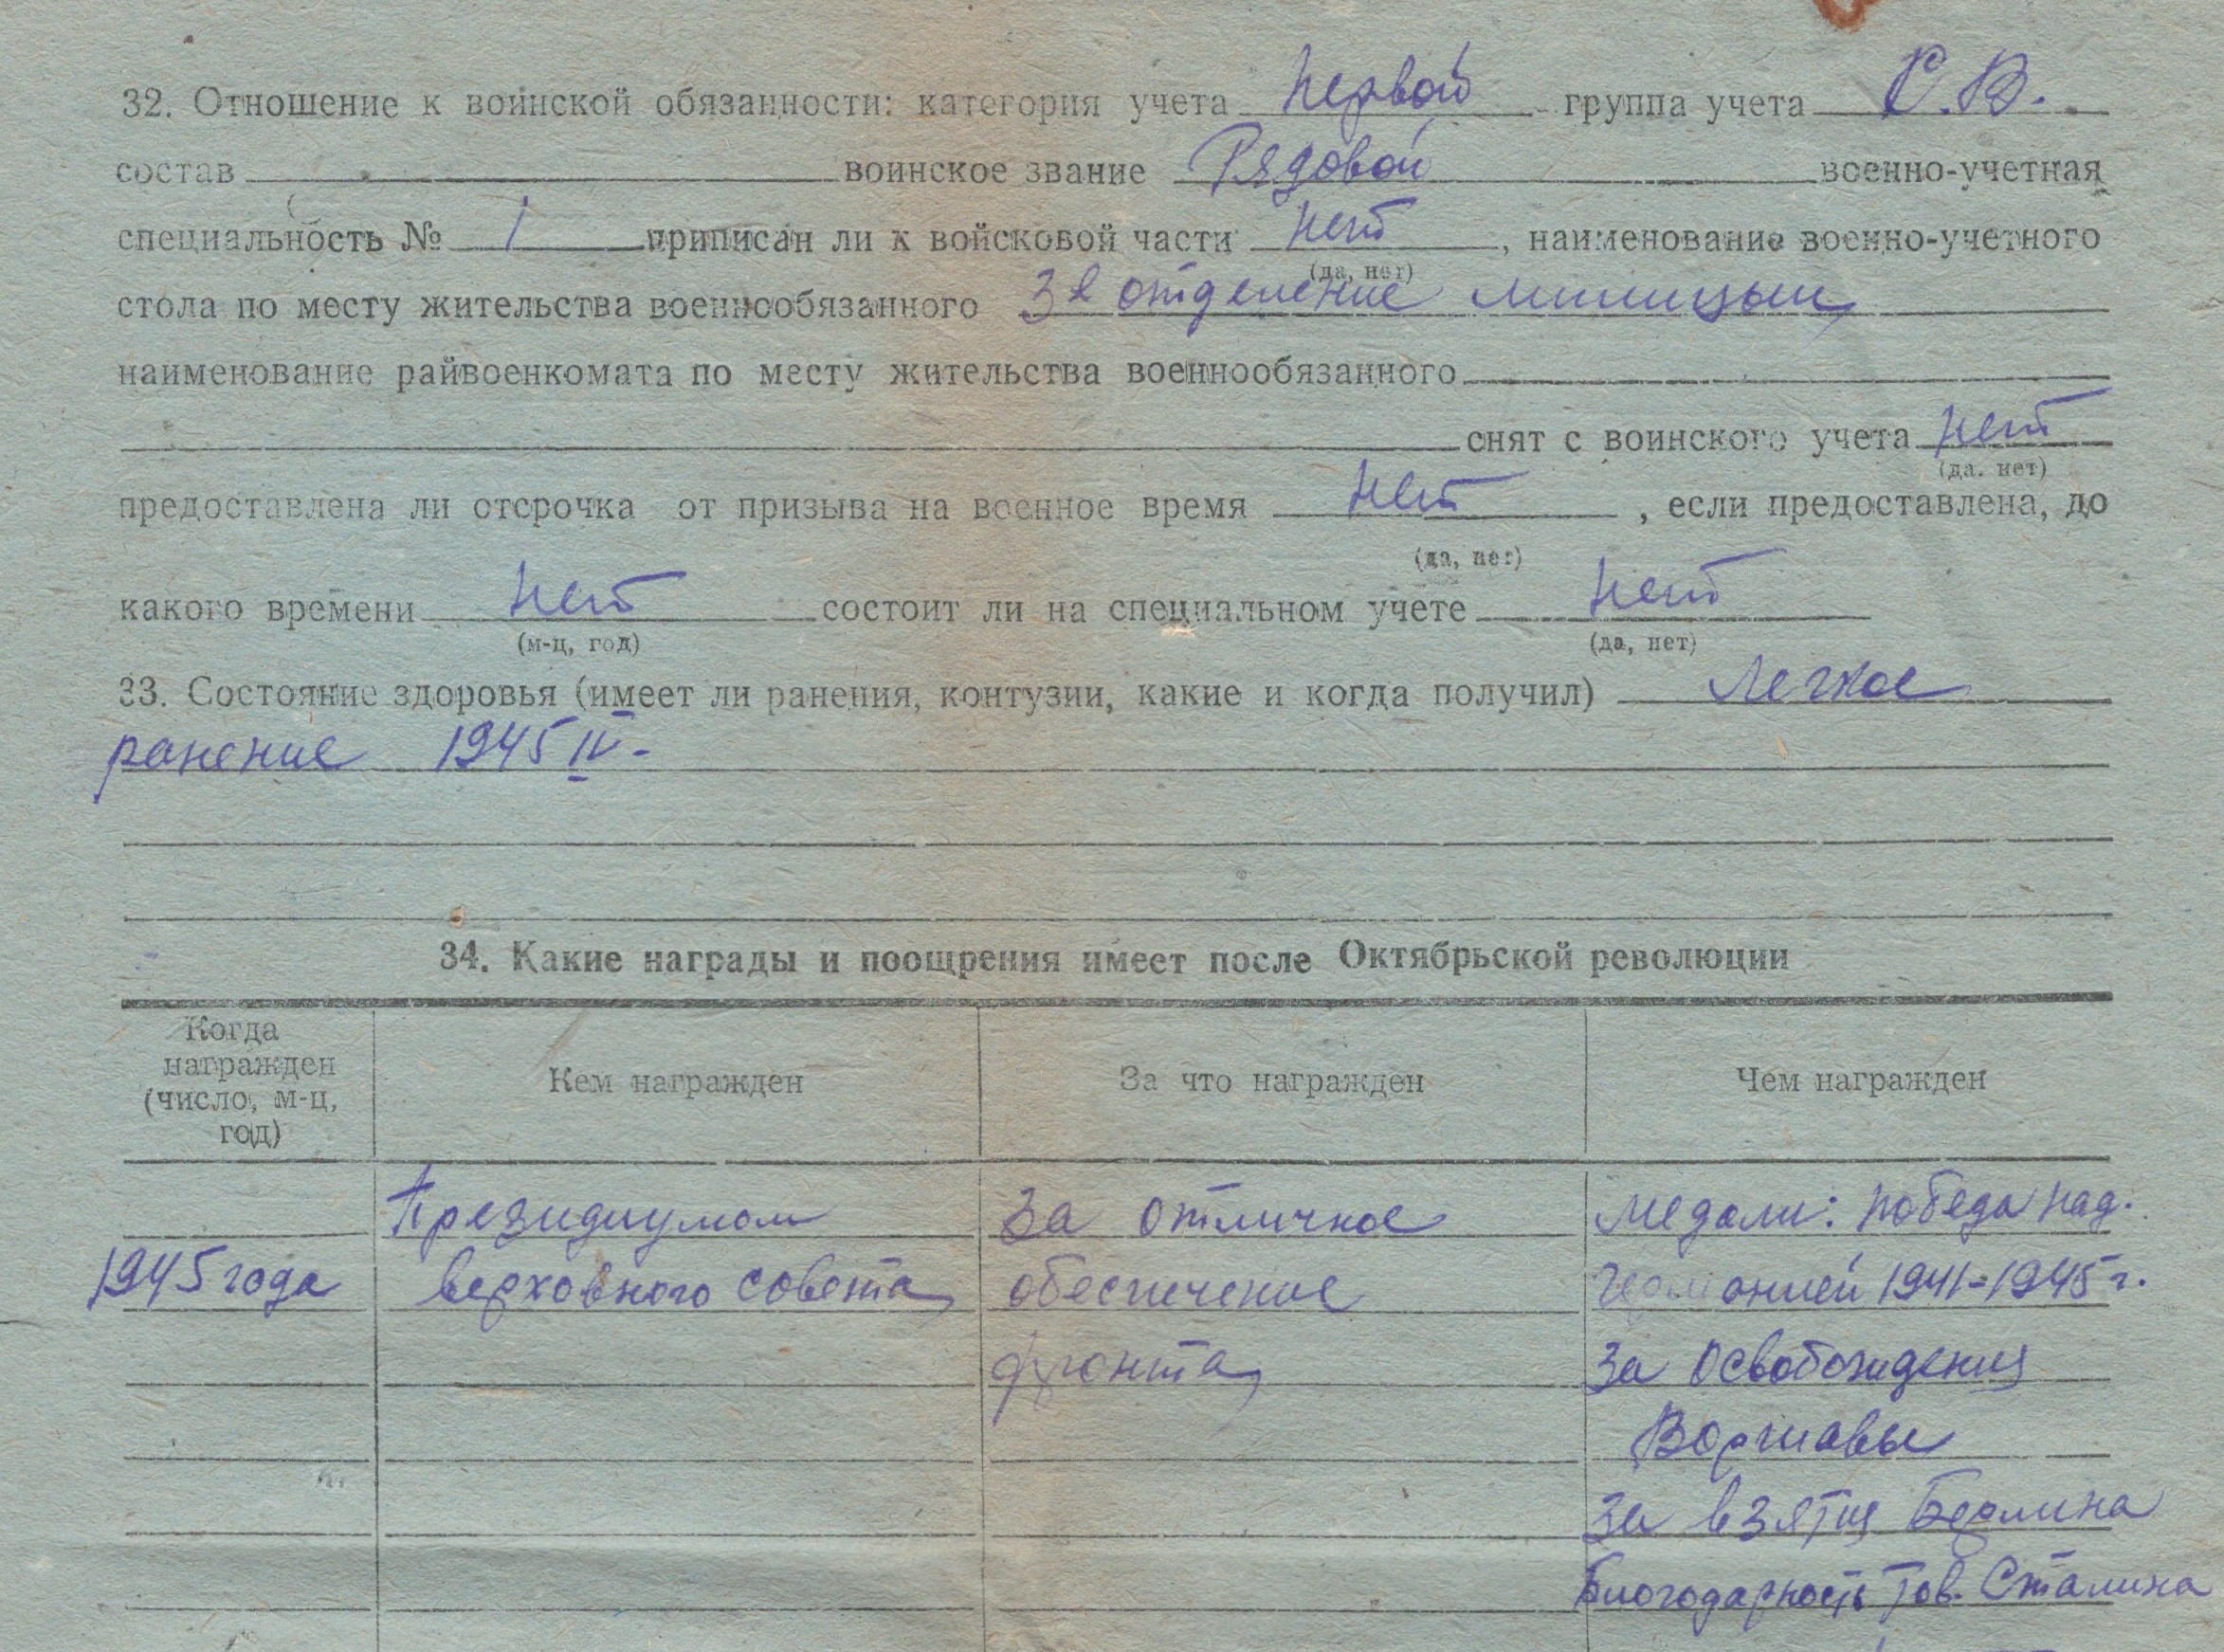 32. Отношение к воинской обязанности: категория учета первой группа учета С.В.
состав воинское звание Рядовой военно-учетная
специальность № 1 приписан ли к войсковой части нет, наименование военно-учетного
(да, нет)
стола по месту жительства военнообязанного 3е отделение милицыи
наименование райвоенкомата по месту жительства военнообязанного
снят с воинского учета нет
(да. нет)
предоставлена ли отсрочка от призыва на военное время нет, если предоставлена, до
(да, нет)
какого времени нет состоит ли на специальном учете нет
(м-ц, год) (да, нет)
33. Состояние здоровья (имеет ли ранения, контузии, какие и когда получил) Легкое
ранение 1945 IV-
34. Какие награды и поощрения имеет после Октябрьской революции
Когда
награжден
(число, м-ц,
год)
Кем награжден
За что награжден
Чем награжден
Президиумом За отличное Медали: победа над.
1945 года верховного совета обеспечение Германией 1941-1945 г.
фронта за Освобождения
Варшавы
за взятия Берлина
Благодарность тов. Сталина